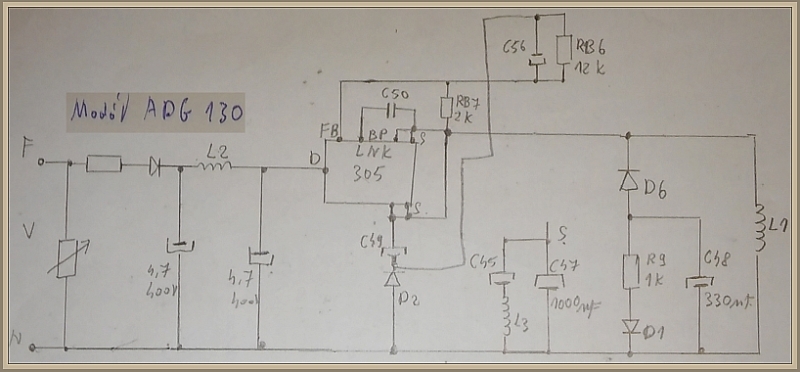 C56
RB6
12k
Modúl ADG 130
C50
RB7
2k
FB
BP
S
F
L2
D
LNK
305
V
4,7
400V
4,7
400V
S
C49
D2
S
C45
C47
1000µF
L3
D6
R9
1k
C48
330µF
D1
L1
N